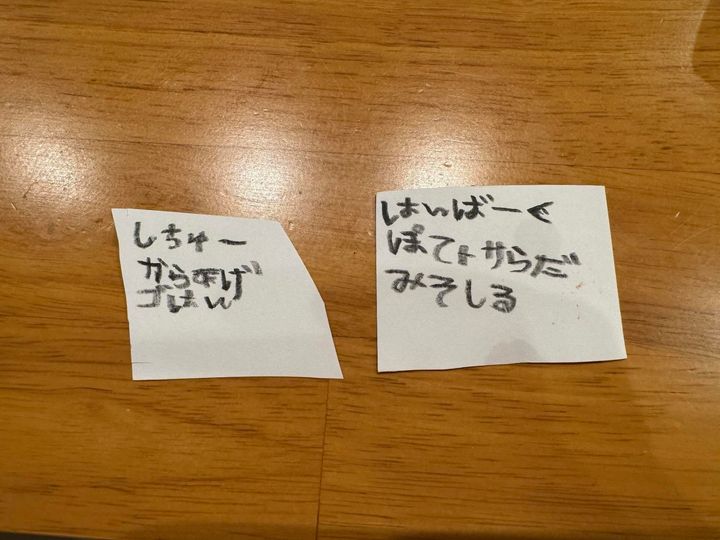 しちゅー
からあげ
ゴはん
はんばーぐ
ぽてトサらだ
みそしる